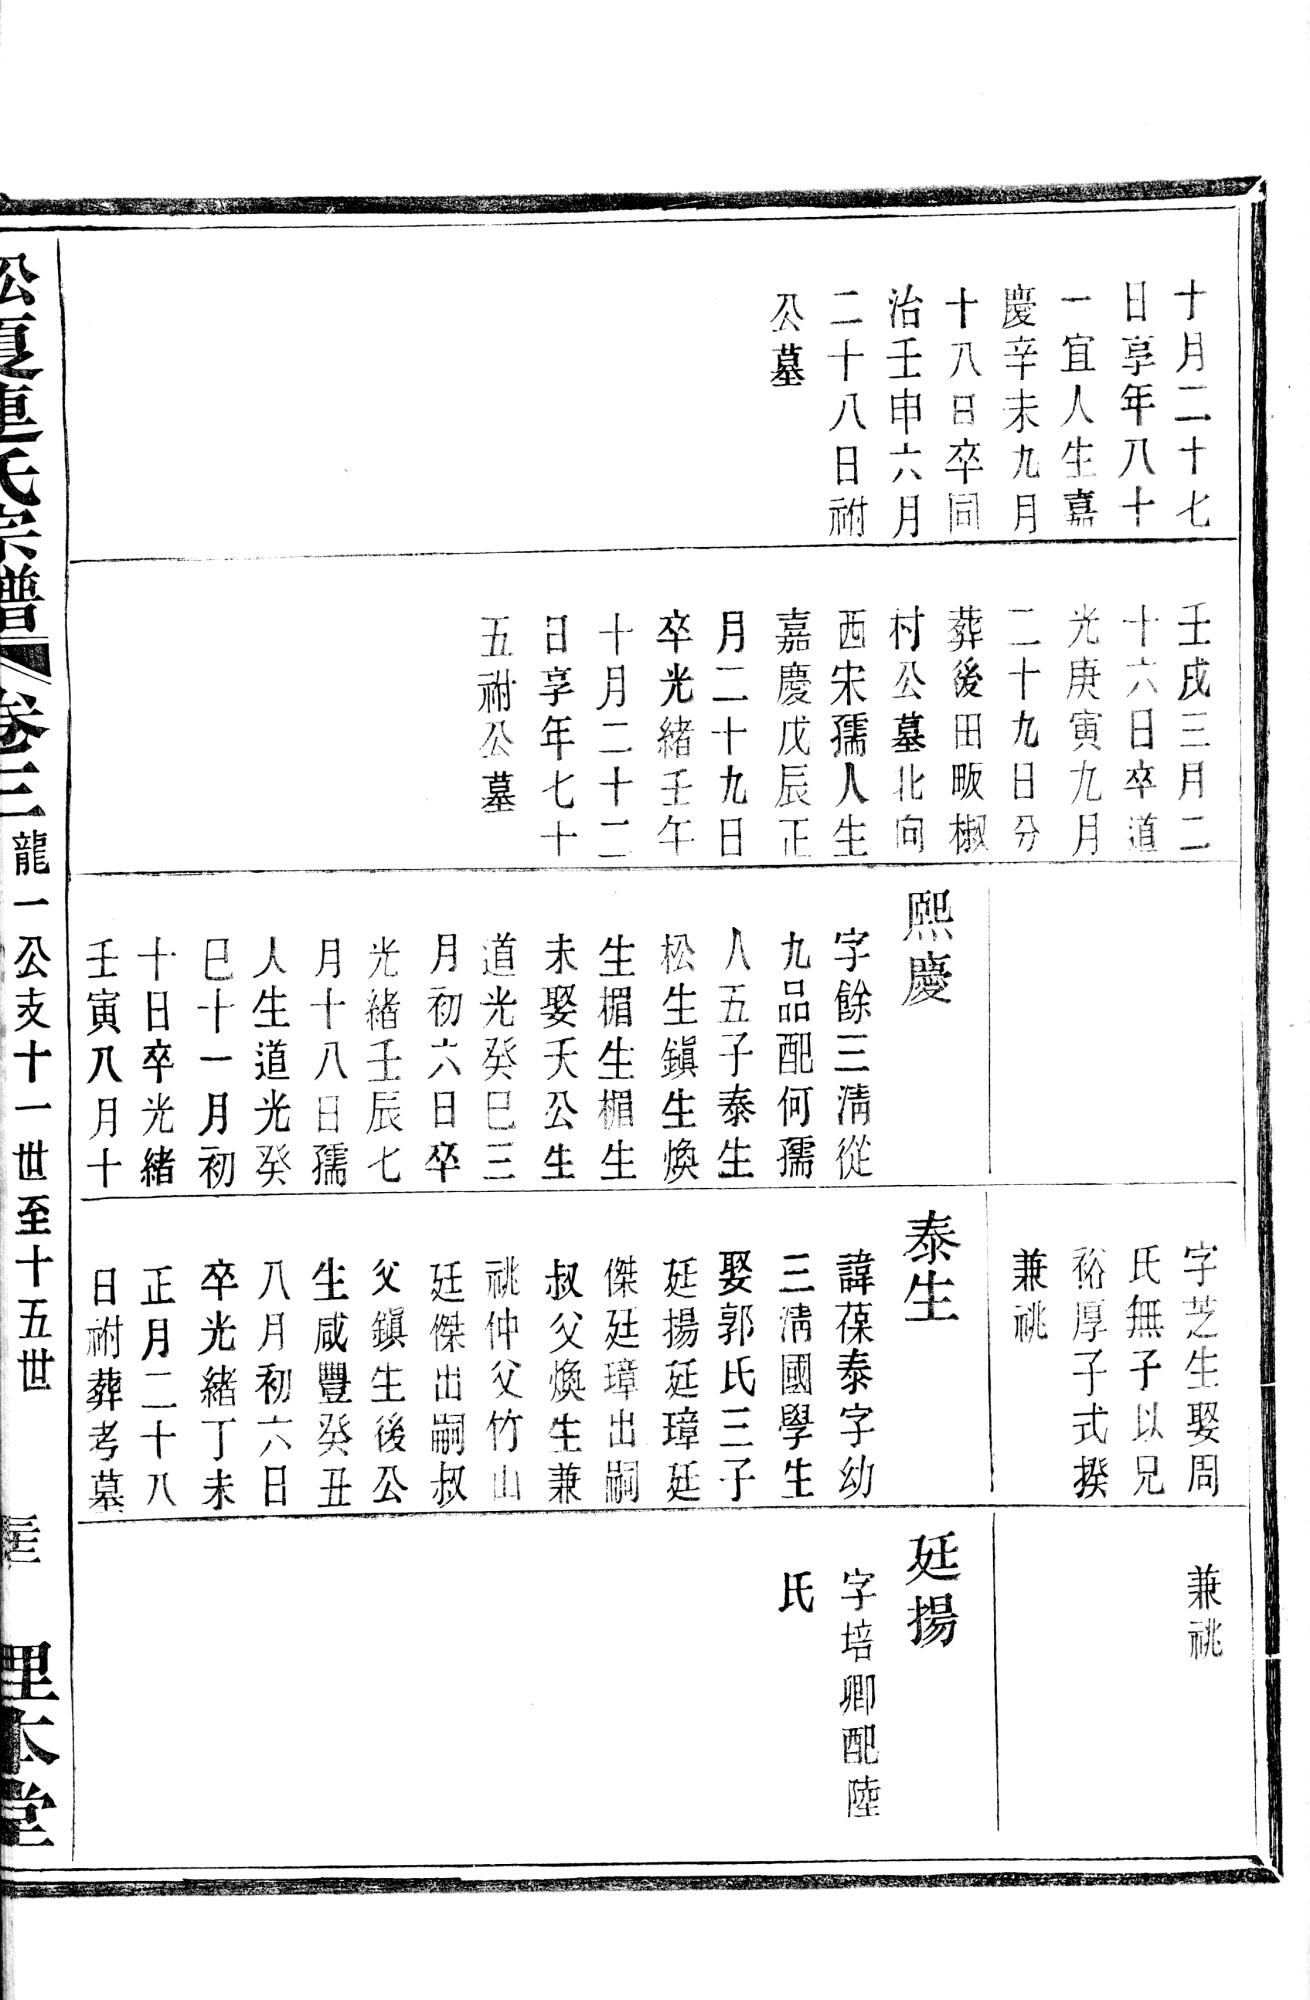 十月二十七
日享年八十
一宜人生嘉
慶辛未九月
十八日卒同
治壬申六月
二十八日祔
公墓
壬戌三月二
十六日卒道
光庚寅九月
二十九日分
葬後田畈椒
村公墓北向
西宋孺人生
嘉慶戊辰正
月二十九日
卒光緒壬午
十月二十二
日享年七十
五祔公墓
熙慶
字餘三淸從
九品配何孺
人五子泰生
松生鎭生煥
生楣生楣生
未娶夭公生
道光癸巳三
月初六日卒
光緒壬辰七
月十八日孺
人生道光癸
巳十一月初
十日卒光緒
壬寅八月十
字芝生娶周
氏無子以兄
裕厚子式揆
兼祧
泰生
諱葆泰字幼
三淸國學生
娶郭氏三子
廷揚廷璋廷
傑廷璋出嗣
叔父煥生兼
祧仲父竹山
廷傑出嗣叔
父鎭生後公
生咸豐癸丑
八月初六日
卒光緒丁未
正月二十八
日祔葬考墓
兼祧
廷揚
字培卿配陸
氏
松夏連氏宗譜 卷三 龍一公支十一世至十五世 理本堂